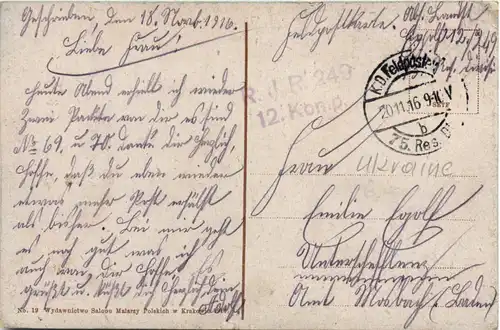 Geschrieben, den 18. Novb. 1916.
Liebe Frau!
Heute Abend erhielt ich wieder
zwei Pakete von dir es sind
No 69. u. 70. Danke dir herzlich,
hoffe, daß du eben wieder
etwas mehr Post erhälst
als bisher. Bei mir geht
es noch gut was ich
auch von dir hoffe. Es
grüßt u. küßt dich herzlich dein
Adolf
No. 19 Wydawnictwo Salonu Malarzy Polskich w Krakowie
Feldpostkarte. Abs. Landst.
R. J. R. 249
12. Komp.
K.D. Feldpost
20.11.16 9-10V
b
75. Res. Di
Frau
Ukraine
Emilie Egolf
Unterschefflenz
Amt Mosbach (Baden